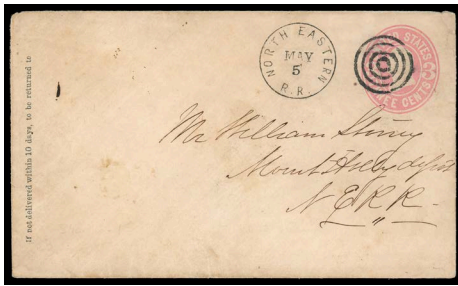 If not delivered within 10 days, to be returned to
NORTH EASTERN
MAY
5
R.R.
D STATES
EE CENTS
3
Mr William Stoney
Mount Holly depot
N.E.R.R.